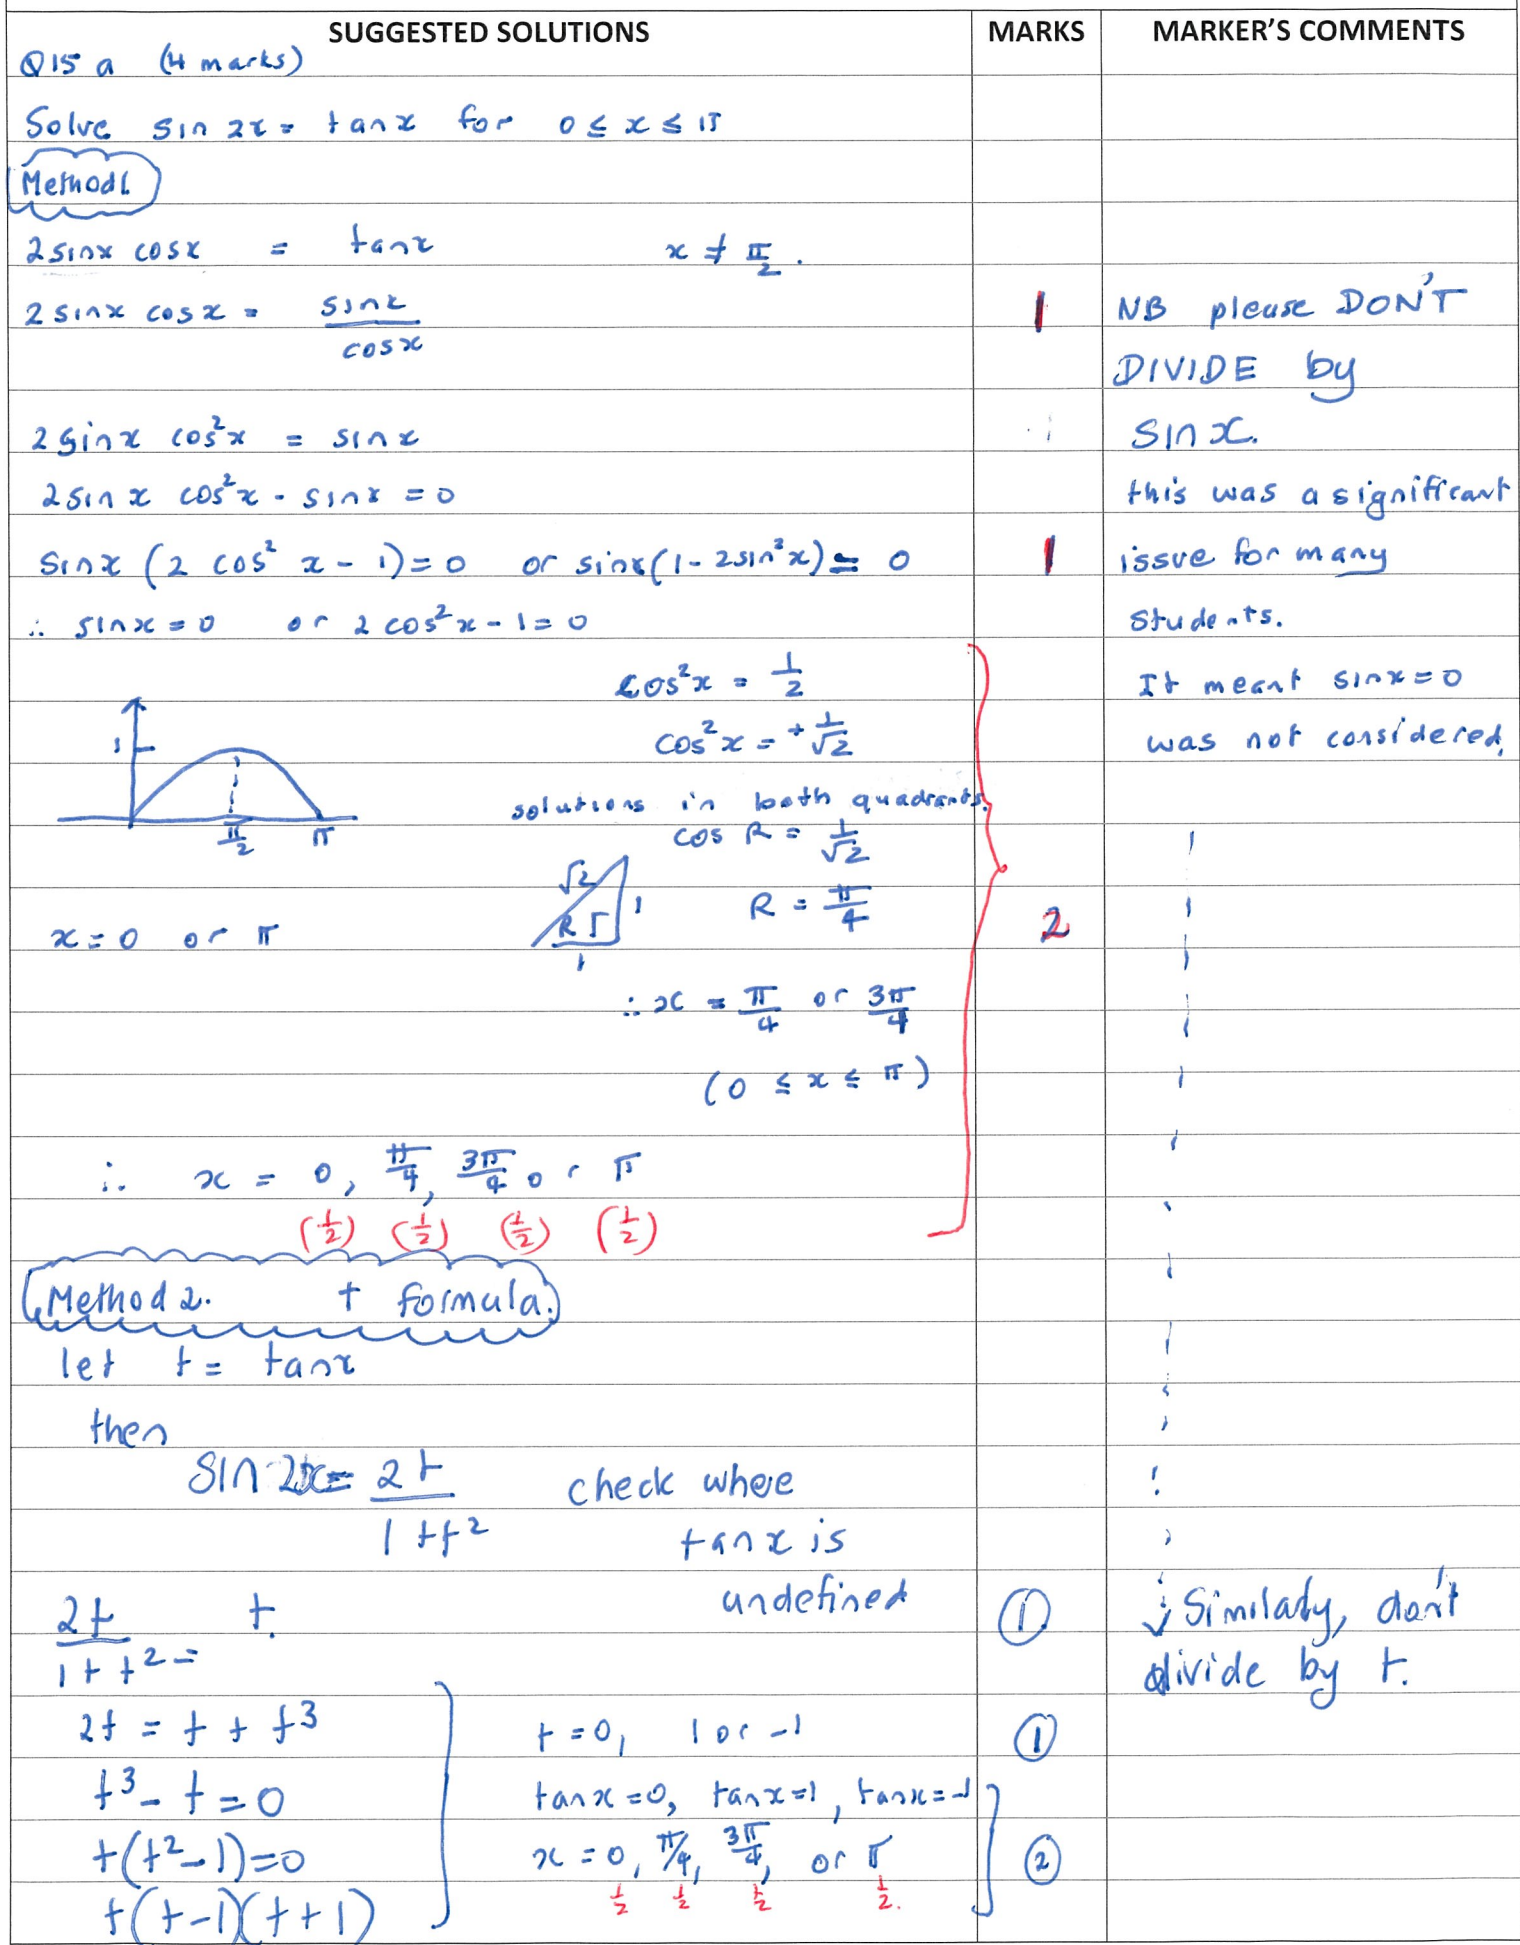 SUGGESTED SOLUTIONS MARKS MARKER'S COMMENTS
Q15 a (4 marks)
Solve sin 2x = tanx for 0 ≤ x ≤ π
Method 1.
2 sinx cosx = tanx x ≠ π/2.
2 sinx cosx = sinx/cosx 1 NB please DON'T
DIVIDE by
2 sinx cos²x = sinx sin x.
2 sin x cos²x - sinx = 0 this was a significant
Sinx (2 cos² x - 1) = 0 or sinx(1 - 2sin²x) = 0 1 issue for many
∴ sinx = 0 or 2 cos²x - 1 = 0 students.
cos²x = 1/2 It meant sinx = 0
1 cos²x = +1/√2 was not considered.
solutions in both quadrants.
π/2 π cos R = 1/√2
√2 R 1 1 R = π/4
x = 0 or π 2
∴ x = π/4 or 3π/4
(0 ≤ x ≤ π)
∴ x = 0, π/4, 3π/4 or π
(1/2) (1/2) (1/2) (1/2)
Method 2. t formula.
let t = tanx
then
sin 2x = 2t/1+t² check where
tanx is
undefined
2t/1+t² = t. 1 Similarly, don't
divide by t.
2t = t + t³ t = 0, 1 or -1 1
t³ - t = 0 tanx = 0, tanx = 1, tanx = -1
t(t² - 1) = 0 x = 0, π/4, 3π/4, or π 2
1/2 1/2 1/2 1/2.
t(t-1)(t+1)